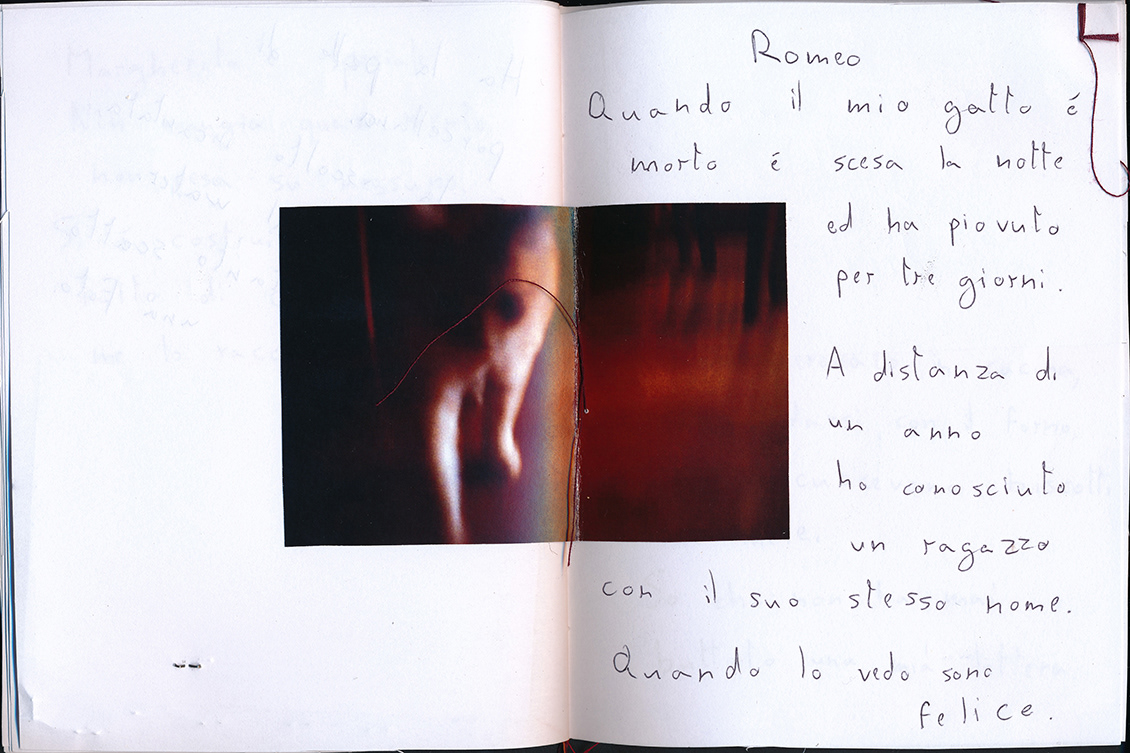 Romeo
Quando il mio gatto é
morto é scesa la notte
ed ha piovuto
per tre giorni.
A distanza di
un anno
ho conosciuto
un ragazzo
con il suo stesso nome.
Quando lo vedo sono
felice.